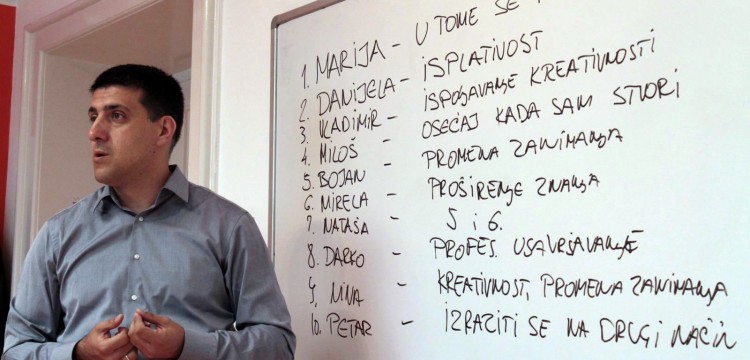 1. MARIJA - U TOME SE
2. DANIJELA - ISPLATIVOST
3. VLADIMIR - ISPOJAVANJE KREATIVNOSTI
4. MILOŠ - OSEĆAJ KADA SAM STVORI
5. BOJAN - PROMENA ZANIMANJA
6. MIRELA - PROŠIRENJE ZNANJA
7. NATAŠA - 5 i 6.
8. DARKO - PROFES. USAVRŠAVANJE
9. NINA - KREATIVNOST, PROMENA ZANIMANJA
10. PETAR - IZRAZITI SE NA DRUGI NAČIN